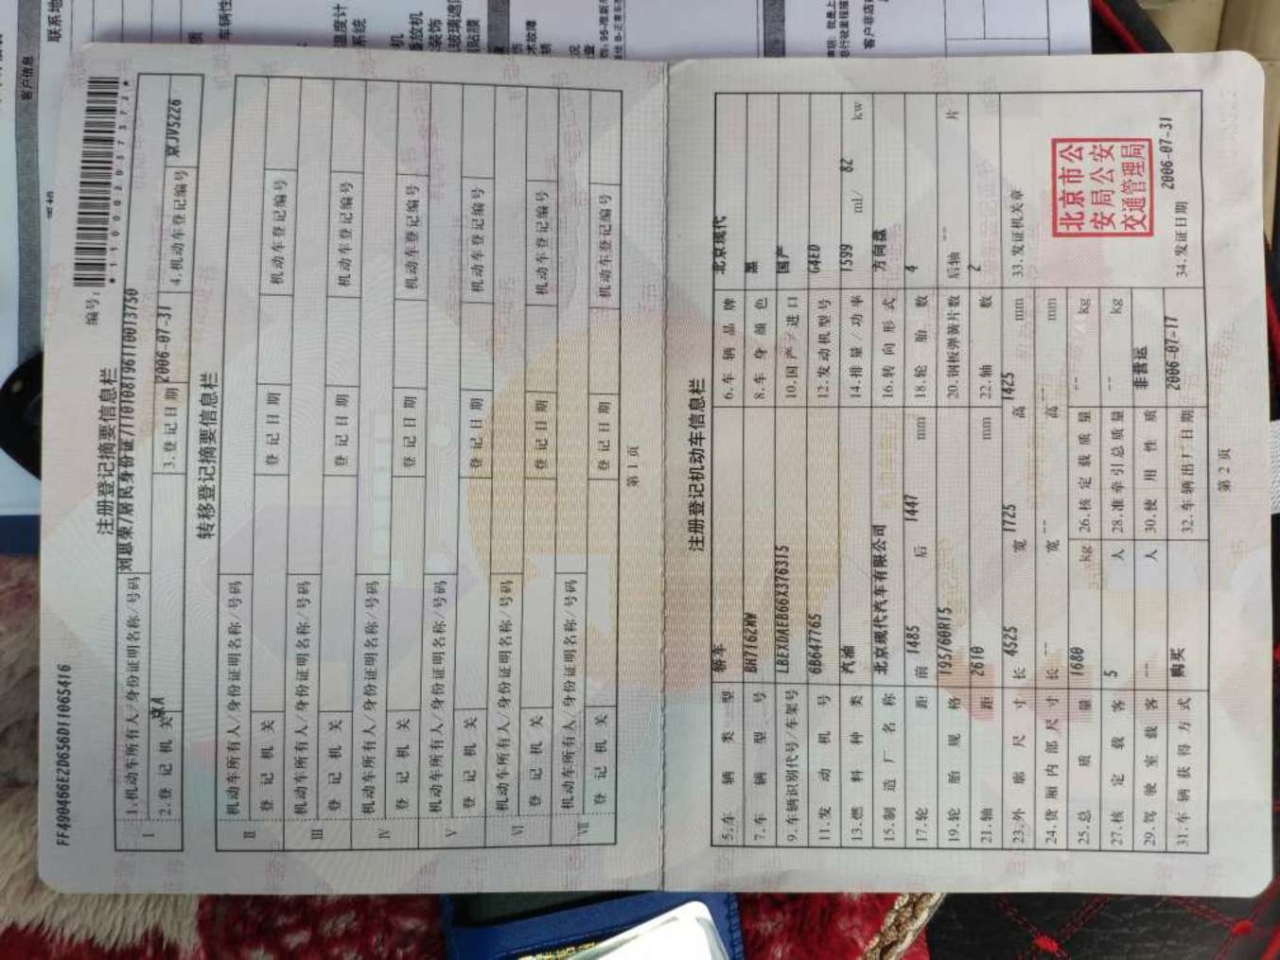 FF490466E2D656D11065416
编号:
*110002037373*
注册登记摘要信息栏
I
1.机动车所有人/身份证明名称/号码 刘恩荣/居民身份证/110108196110013750
2.登记机关 京A 3.登记日期 2006-07-31 4.机动车登记编号 京JV5226
转移登记摘要信息栏
II 机动车所有人/身份证明名称/号码
登记机关 登记日期 机动车登记编号
III 机动车所有人/身份证明名称/号码
登记机关 登记日期 机动车登记编号
IV 机动车所有人/身份证明名称/号码
登记机关 登记日期 机动车登记编号
V 机动车所有人/身份证明名称/号码
登记机关 登记日期 机动车登记编号
VI 机动车所有人/身份证明名称/号码
登记机关 登记日期 机动车登记编号
VII 机动车所有人/身份证明名称/号码
登记机关 登记日期 机动车登记编号
第1页
注册登记机动车信息栏
5.车辆类型 轿车 6.车辆品牌 北京现代
7.车辆型号 BH7162MW 8.车身颜色 黑
9.车辆识别代号/车架号 LBEXDAEB66X376315 10.国产/进口 国产
11.发动机号 6B647765 12.发动机型号 G4ED
13.燃料种类 汽油 14.排量/功率 1599 ml/ 82 kw
15.制造厂名称 北京现代汽车有限公司 16.转向形式 方向盘
17.轮距 前 1485 后 1447 mm 18.轮胎数 4
19.轮胎规格 195/60R15 20.钢板弹簧片数 后轴 -- 片
21.轴距 2610 mm 22.轴数 2
23.外廓尺寸 长 4525 宽 1725 高 1425 mm 33.发证机关章
24.货厢内部尺寸 长 -- 宽 -- 高 -- mm
25.总质量 1680 kg 26.核定载质量 -- kg
北京市公
安局公安
交通管理局
27.核定载客 5 人 28.准牵引总质量 -- kg
29.驾驶室载客 -- 人 30.使用性质 非营运
31.车辆获得方式 购买 32.车辆出厂日期 2006-07-17 34.发证日期 2006-07-31
第2页
客户信息
联系地